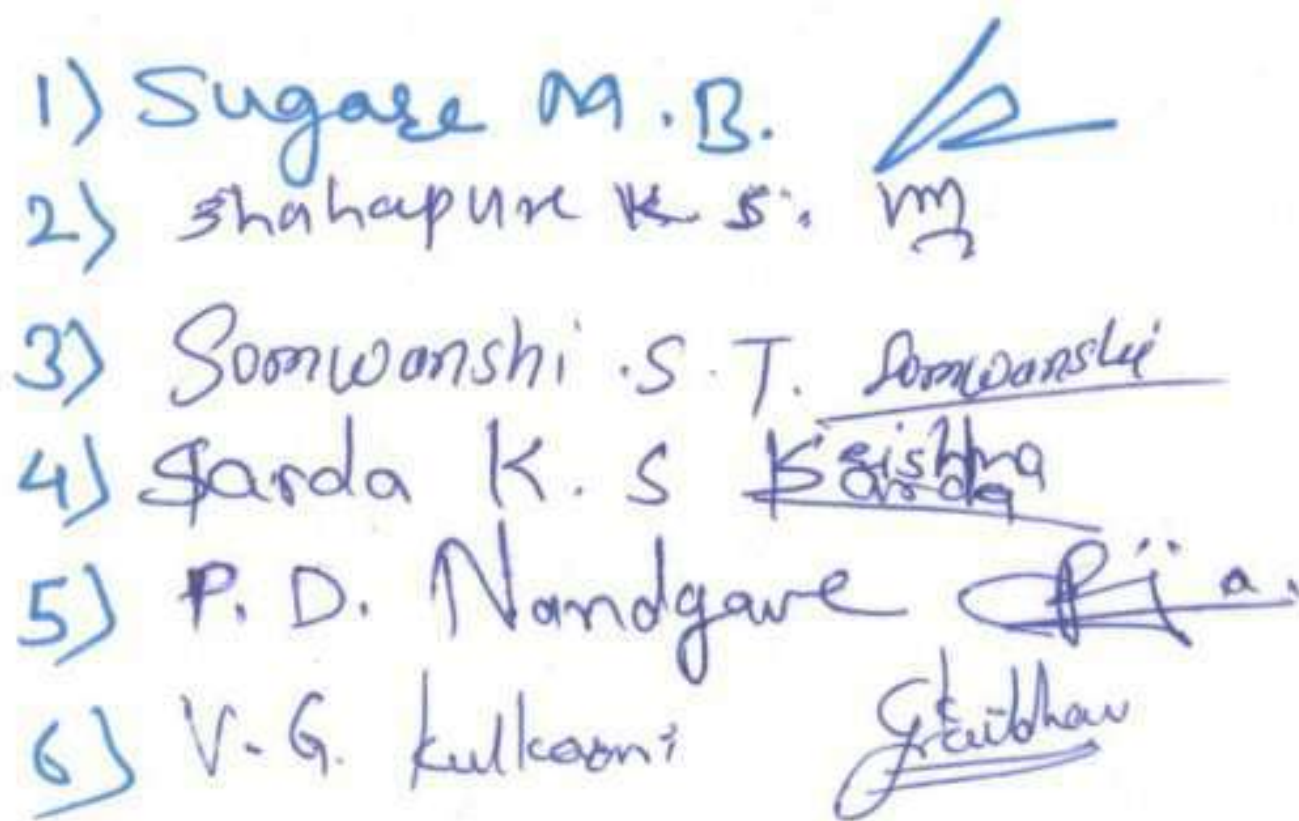 1) Sugare M.B.
2) Shahapure K S.
3) Somwanshi .S.T. Somwanshi
4) Sarda K.S Krishna Sarda
5) P. D. Nandgave
6) V.G. Kulkarni